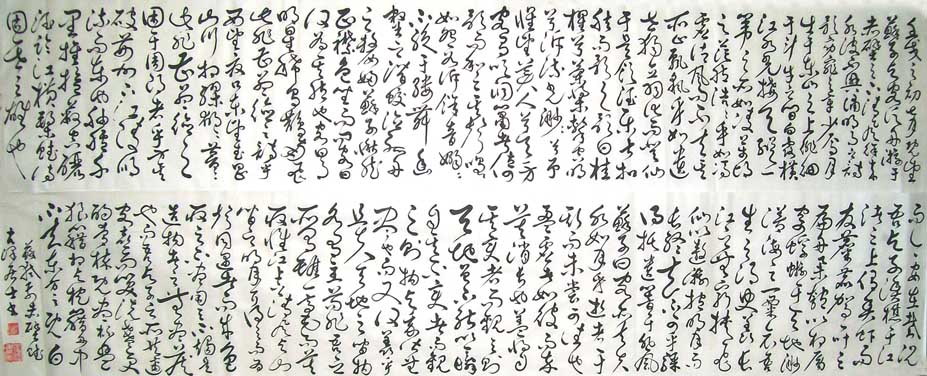 壬戌之秋七月既望
蘇子與客泛舟遊于
赤壁之下清風徐來
水波不興誦明月之詩
歌窈窕之章少焉月
出于東山之上徘徊
于斗牛之間白露橫
江水光接天縱一
葦之所如凌萬頃
之茫然浩浩乎如馮
虛御風而不知其
所止飄飄乎如遺
世獨立羽化而登仙
于是飲酒樂甚扣
舷而歌之歌曰桂
棹兮蘭槳擊空明
兮泝流光渺渺兮予
懷望美人兮天一方
客有吹洞簫者倚
歌而和之其聲嗚嗚然
如怨如訴餘音嫋嫋
不絕如縷舞幽
壑之潛蛟泣孤舟
之嫠婦蘇子愀然
正襟危坐而問客曰
何為其然也客曰月
明星稀烏鵲南飛
此非曹孟德之詩乎
西望夏口東望武昌
山川相繆鬱乎蒼蒼
此非孟德之
困于周郎者乎方其
破荊州下江陵順
流而東也舳艫千
里旌旗蔽空釃
酒臨江橫槊賦詩
固一世之雄也
而今安在哉況
吾與子漁樵于江
渚之上侶魚蝦而
友麋鹿駕一葉之
扁舟舉匏樽以相屬
寄蜉蝣于天地渺
滄海之一粟哀吾
生之須臾羨長
江之無窮挾飛
仙以遨遊抱明月而
長終知不可乎驟
得托遺響于悲風
蘇子曰客亦知夫
水與月乎逝者如
斯而未嘗往也盈
虛者如彼而卒
莫消長也蓋將自
其變者而觀之則
天地曾不能以一瞬
自其不變者而觀
之則物與我皆無
盡也而又何羨乎
且夫天地之間物
各有主苟非吾之
所有雖一毫而莫
取惟江上之清風與山
間之明月耳得之
而為聲目遇之而成色
取之無禁用之不竭是
造物者之無盡藏
也而吾與子之所共適
客喜而笑洗盞更
酌肴核既盡杯盤
狼籍相與枕藉乎舟中
不知東方之既白
蘇軾前赤壁賦